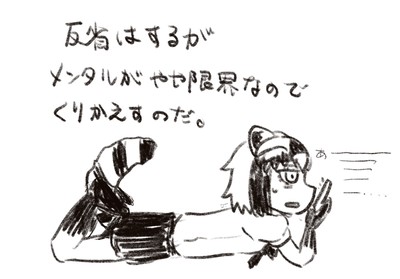 反省はするが
メンタルがやや限界なので
くりかえすのだ。
あ